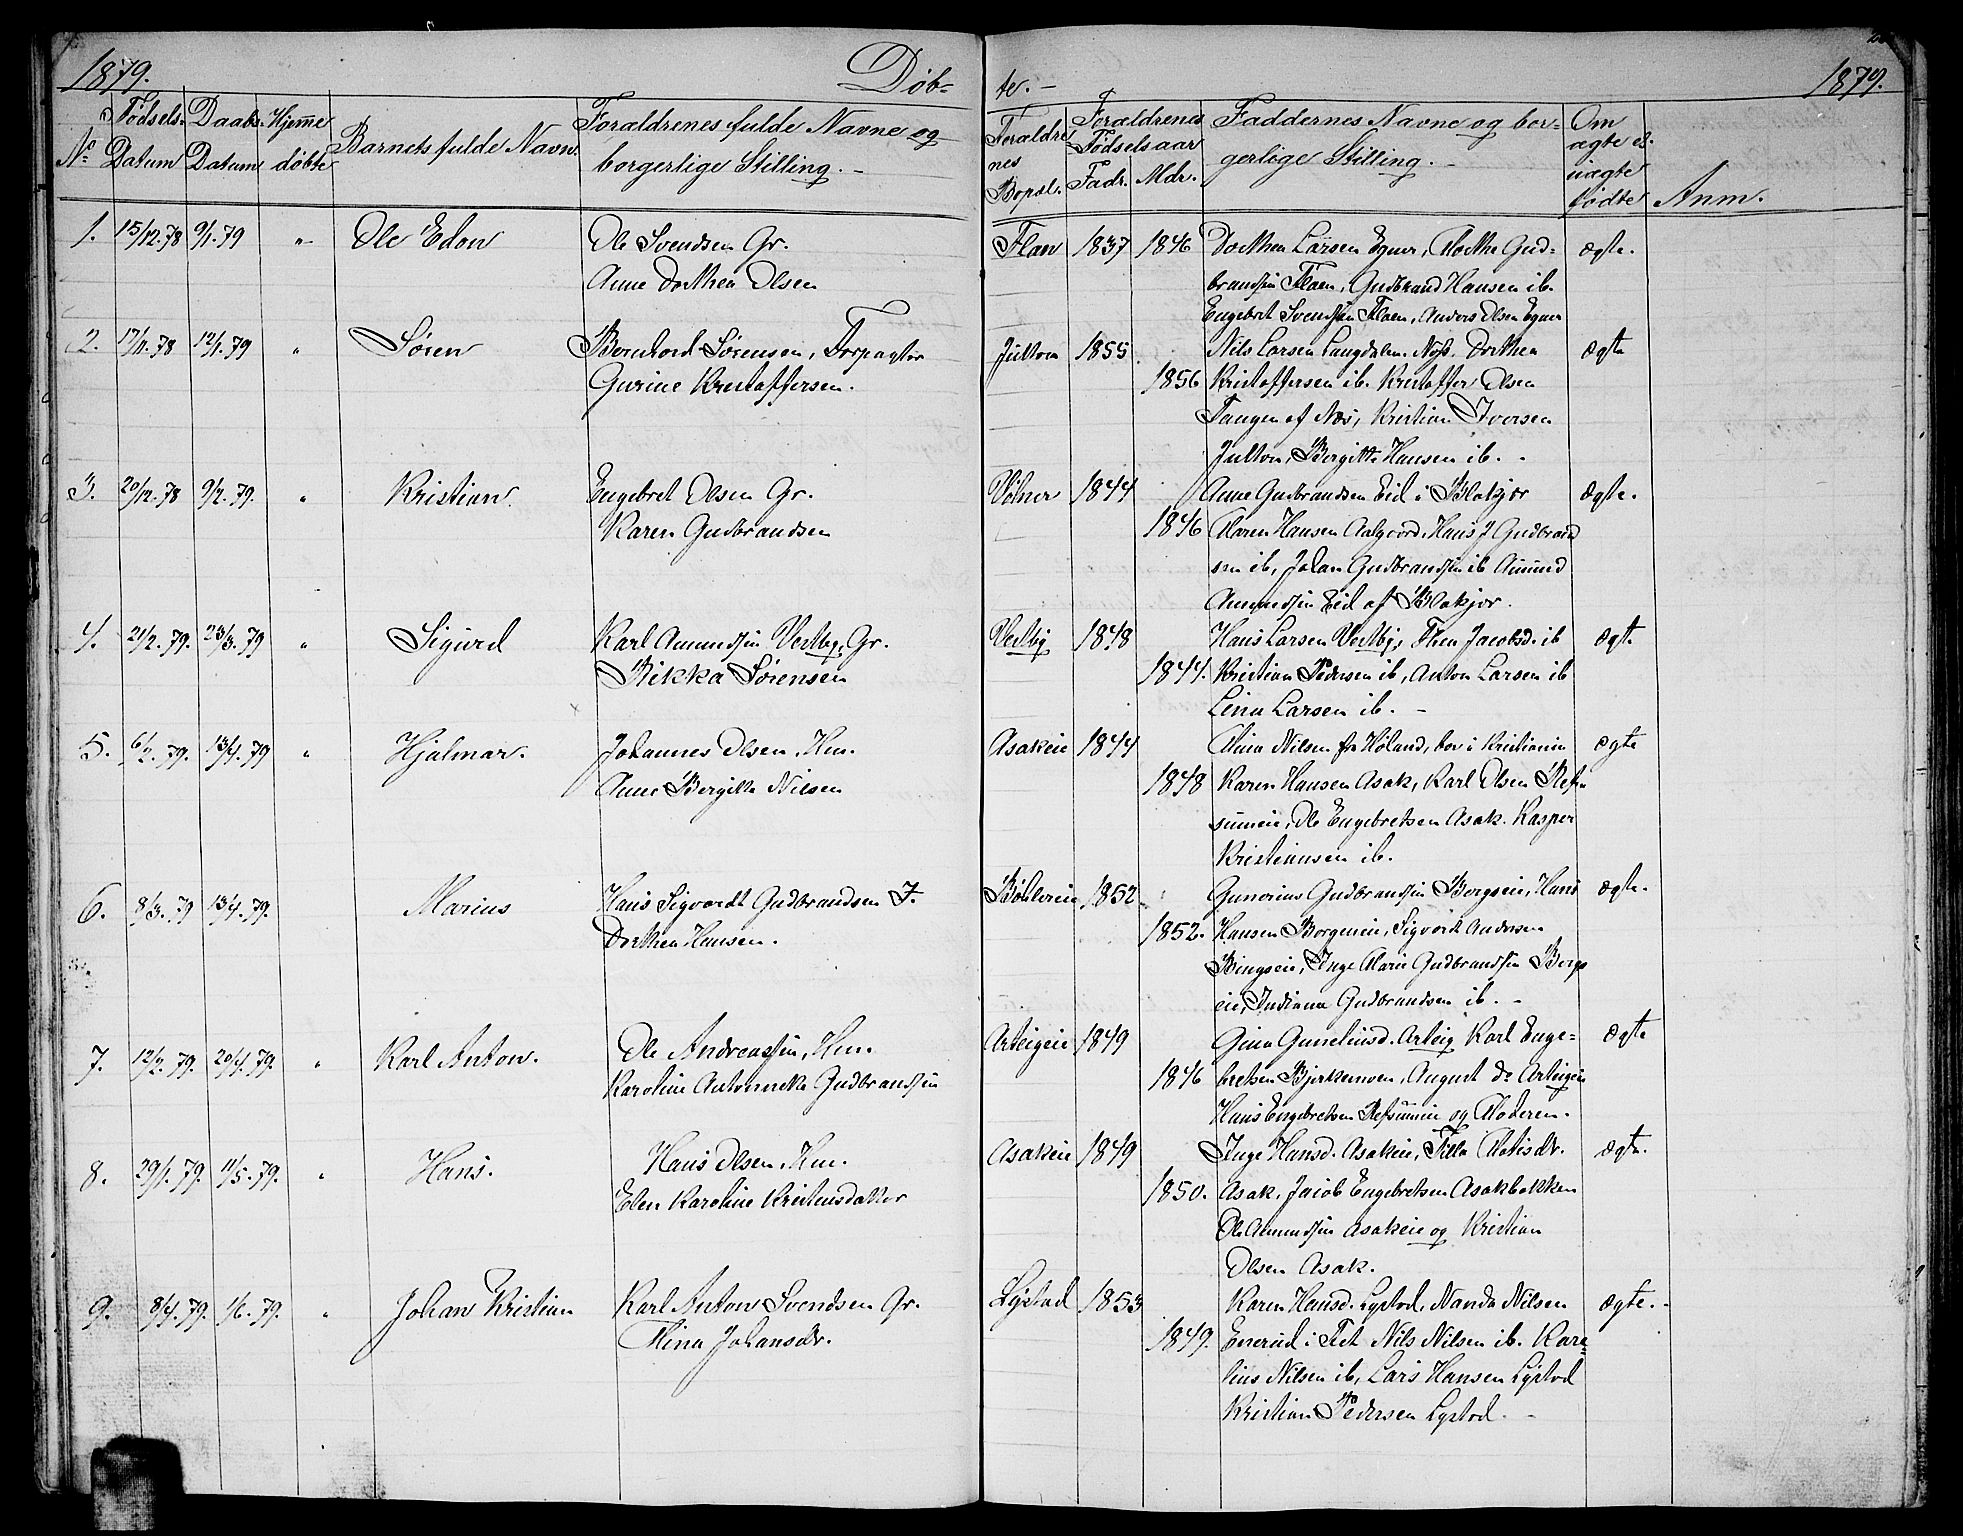 1879.
Døb-
No
Fødsels-
Datum
Daabs-
Datum
Hjemme
døbte
Barnets fulde Navn.
Forældrenes fulde Navne og
borgerlige Stilling. -
1. 15/12.78 9/1.79 " Ole Edon
Ole Svendsen Gr.
Anne Dorthea Olsen
2. 17/11.78 12/1.79 " Søren
Bernhard Sørensen, Forpagter
Gurine Kristoffersen.
3. 20/12.78 9/2.79. " Kristian.
Engebret Olsen Gr.
Karen Gudbrandsen
4. 21/2.79. 23/3.79 " Sigurd
Karl Amundsen Vestby, Gr.
Rikka Sørensen
5. 6/2.79. 13/4.79 " Hjalmar.
Johannes Olsen, Hm.
Anne Bergitte Nilsen
6. 8/3.79 13/4.79. Marius
Hans Sigvardt Gudbrandsen I.
Dorthea Hansen.
7. 12/2.79. 20/4.79. " Karl Anton.
Ole Andreassen, Hm.
Karoline Antonneke Gudbrandsen
8. 29/1.79. 11/5.79. " Hans.
Hans Olsen, Hm.
Elen Karoline Kristensdatter
9. 8/4.79. 1/6.79. " Johan Kristian
Karl Anton Svendsen Gr.
Mina Johansdr.
te. -
1879.
Forældre
nes
Bopæl.
Forældrenes
Fødselsaar
Fadr. Mdr.
Faddernes Navne og bor-
gerlige Stilling. -
Om
ægte el.
uægte
fødte
Anm.
Flan 1837 1846 Dorthea Larsen Egner, Marthe Gud- ægte.
brandsen Flaen, Gudbrand Hansen ib.
Engebret Svendsen Flaen, Anders Olsen Egner
Julton 1855 Nils Larsen Langdalen. Næs. Dorthea ægte
1856 Kristoffersen ib. Kristoffer Olsen
Tangen af Næs, Kristian Iversen
Julton, Bergitte Hansen ib. -
Vølner 1844 Anne Gudbrandsen Eid i Blakjer ægte.
1846 Maren Hansen Aalgaard, Hans J Gudbrand
sen ib, Johan Gudbrandsen ib Amund
Amundsen Eid af Blakjer.
Vestby 1848 Hans Larsen Vestby, Thea Jacobsd. ib ægte
1844. Kristian Pedersen ib, Anton Larsen ib
Lina Larsen ib. -
Asakeie 1844 Mina Nilsen fra Høland, bor i Kristiania ægte
1848 Karen Hansen Asak, Karl Olsen Refs
sumeie, Ole Engebretsen Asak. Kasper
Kristiansen ib.
Bøhlereie 1852 Gunerius Gudbrandsen Bergseie, Hans ægte.
1852. Hansen Borgeneie, Sigvardt Andersen
Bingseie, Inge Marie Gudbrandsen Bergs
eie, Indiana Gudbrandsen ib. -
Arteigeie 1849 Gina Guneliusd. Arteig Karl Enge- ægte
1846 bretsen Bjerkemoen, August do Arteigeie
Hans Engebretsen Refsumeie og Moderen.
Asakeie 1849 Inge Hansd. Asakeie, Tilla Matisdr. ægte.
1850. Asak, Jacob Engebretsen Asakbakken
Ole Amundsen Asakeie og Kristian
Olsen Asak.
Lystad 1853 Karen Hansd. Lystad, Nanda Nilsen ægte. -
1849. Enerud i Fet Nils Nilsen ib. Kare-
lius Nilsen ib, Lars Hansen Lystad
Kristian Pedersen Lystad. -